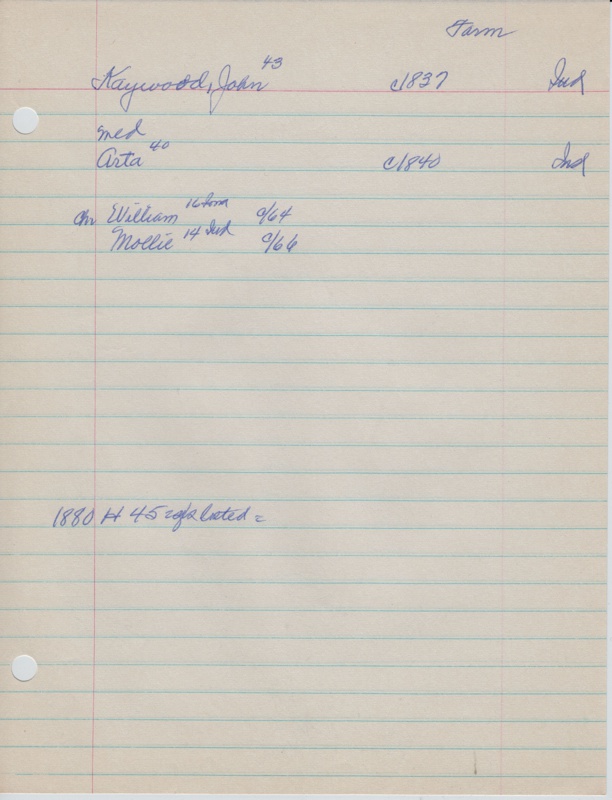 Farm
Kaywood, John 43 c1837 Ind
med
Arta 40 c1840 Ind
chr William 16 Iowa c/64
Mollie 14 Ind c/66
1880 H 45 as listed =